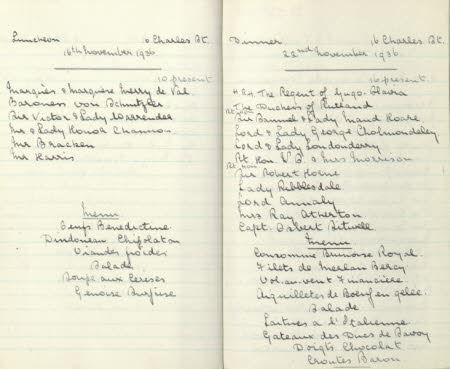 Luncheon 6 Charles St.
16th November 1936
10 present
Marquis & Marquise Merry de Val
Baroness von Schnitzler
Sir Victor & Lady Warrender
Mr & Lady Honor Channon
Mr Bracken
Mr Harris
Menu
Oeufs Benedictine
Dindonneau Chipolatas
Viandes froides
Salade
Soupe aux Cerises
Genoise
Dinner 16 Charles St.
22nd November 1936
16 present
H.R.H. The Regent of Yugo-Slavia
The Duchess of Rutland
Rt Hon Sir Samuel & Lady Maud Hoare
Lord & Lady George Cholmondeley
Lord & Lady Londonderry
Rt. Hon. W. S. & Mrs Morrison
Rt Hon Sir Robert Horne
Lady Ribblesdale
Lord Annaly
Mrs Ray Atherton
Capt. Osbert Sitwell
Menu
Consomme Brunoise Royal
Filets de Merlan Bercy
Vol-au-vent Financière
Aiguillettes de Boeuf en gelée
Salade
Laitues a l'Italienne
Gateaux des Ducs de Savoy
Doigts Chocolat
Croutes Baron